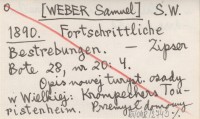 [WEBER Samuel] S.W.
1890. Fortschrittliche
Bestrebungen. — Zipser
Bote 28, nr 20: 4.
Opis nowej turyst. osady
w Wielkiej: Krompelhers Tou-
ristenheim. Przemysł domowy